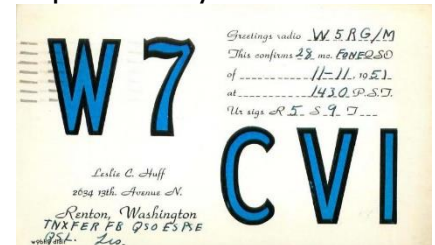 W7
CVI
Greetings radio W5RG/M
This confirms 28 mc. FONE QSO
of 11-11, 1951
at 1430 P.S.T.
Ur sigs R 5 S 9 T
Leslie C. Huff
2634 13th. Avenue N.
Renton, Washington
TNX FER FB QSO ES PSE
QSL. Les.